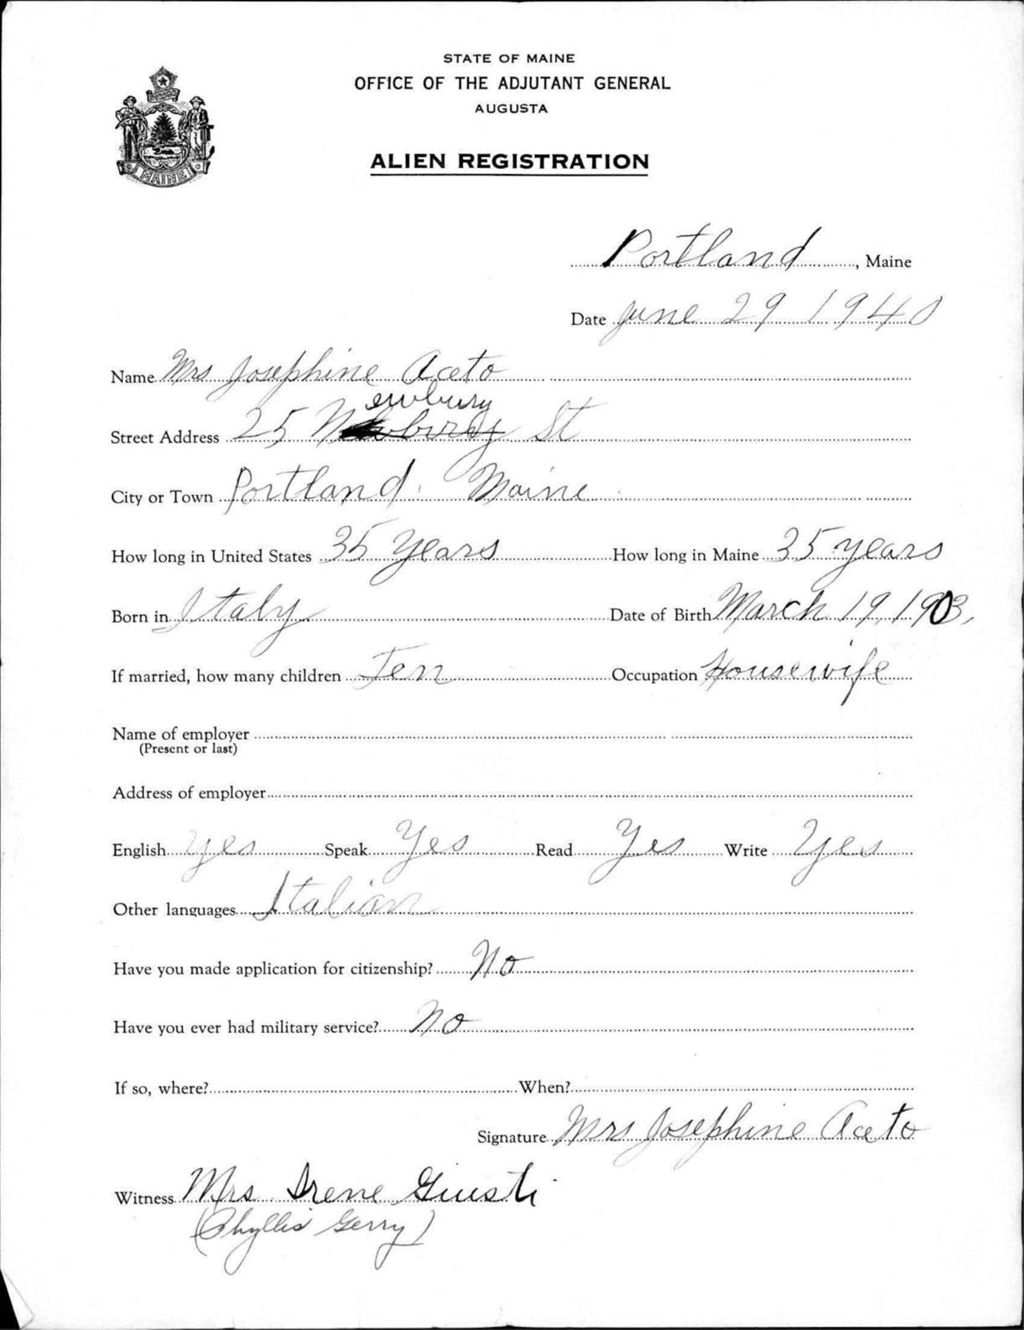 STATE OF MAINE
OFFICE OF THE ADJUTANT GENERAL
AUGUSTA
ALIEN REGISTRATION
MAINE
Portland, Maine
Date June 29 1940
Name Mrs Josephine Aceto
ewbury
Street Address 25 Newbury St
City or Town Portland. Maine
How long in United States 35 Years How long in Maine 35 years
Born in Italy Date of Birth March 19, 1903,
If married, how many children Ten Occupation Housewife
Name of employer
(Present or last)
Address of employer
English yes Speak Yes Read Yes Write Yes
Other languages Italian
Have you made application for citizenship? No
Have you ever had military service? No
If so, where? When?
Signature Mrs Josephine Aceto
Witness Mrs. Irene Giusti
(Phyllis Gerry)